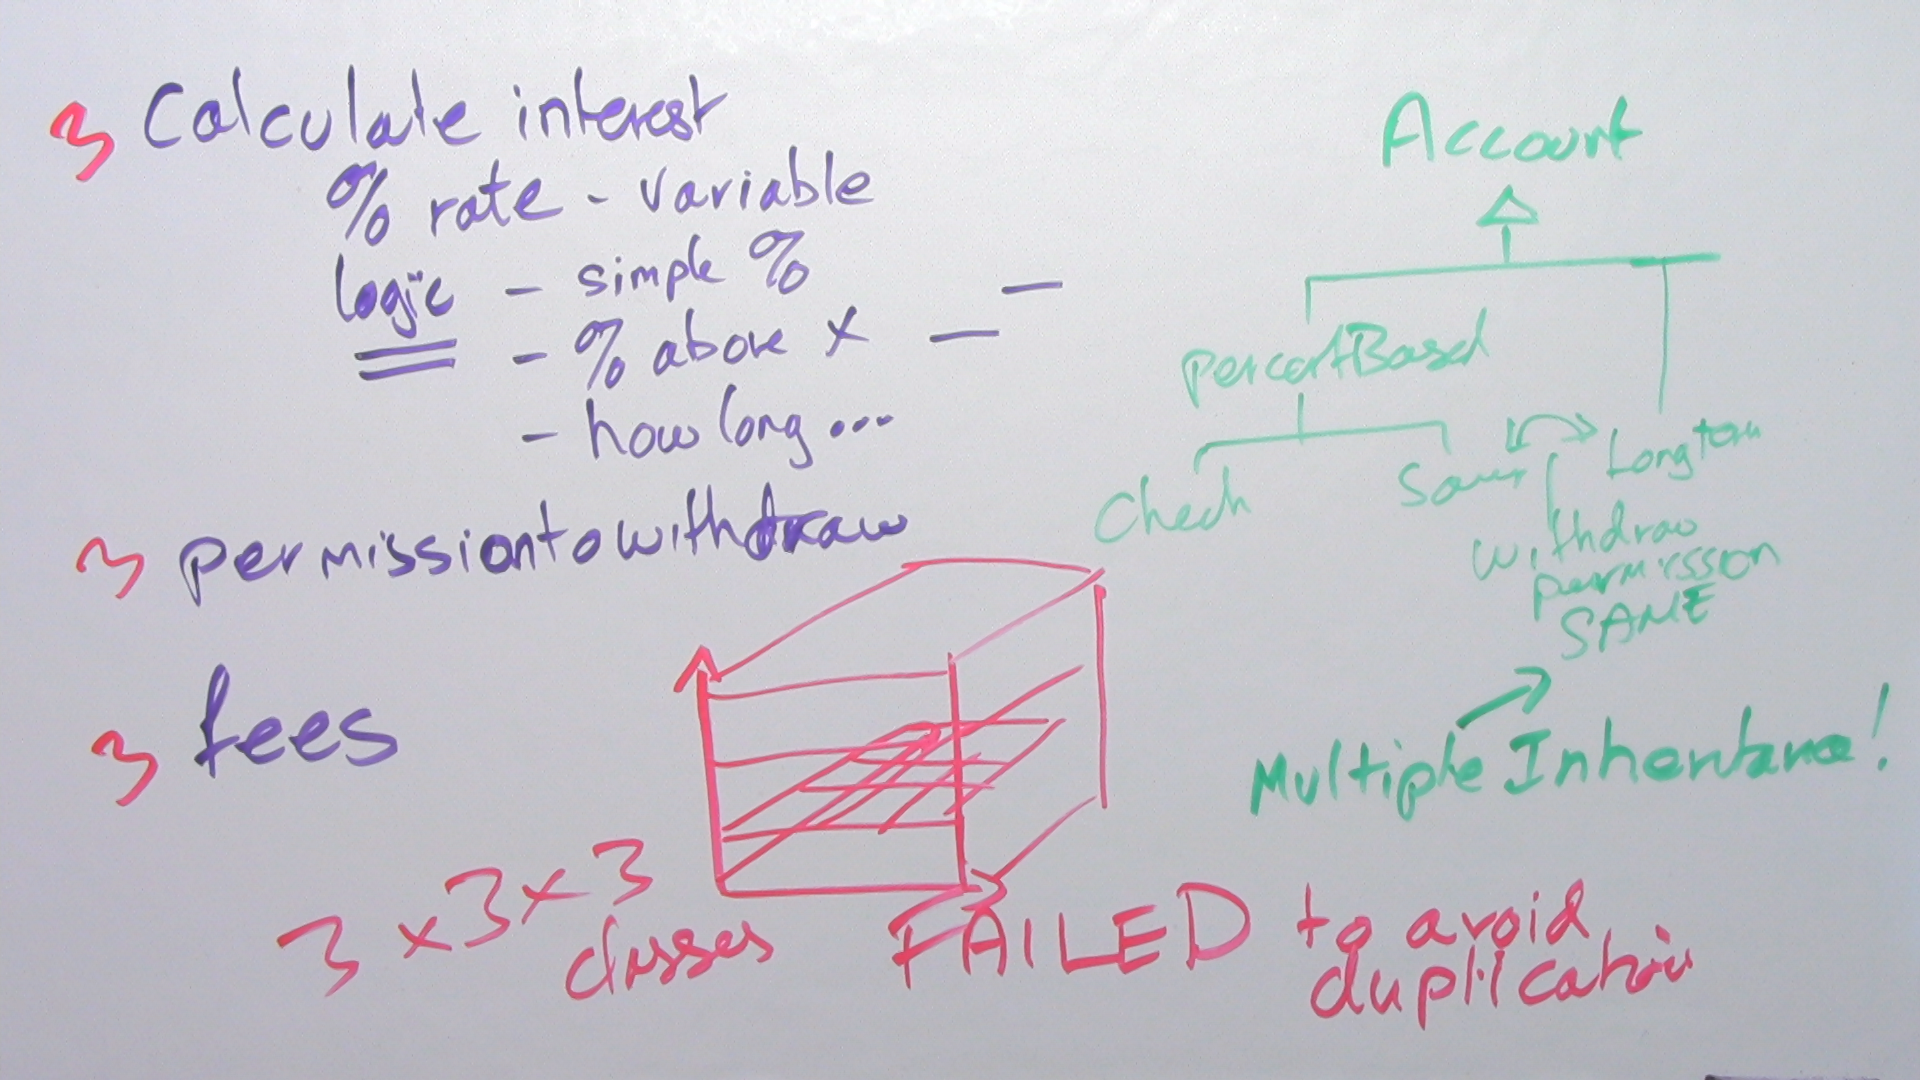 3 Calculate interest
% rate - variable
logic - simple % -
- % above x -
- how long...
3 permission to withdraw
3 fees
3 x 3 x 3
classes
FAILED to avoid
duplication
Account
percentBased
Check
Longterm
withdraw
permission
SAME
Multiple Inheritance!